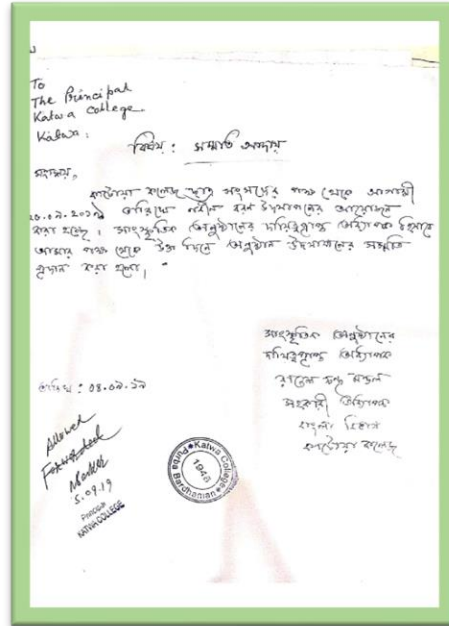 To
The Principal
Katwa College.
Katwa.
বিষয় : সম্মতি আদায়
মহাশয়,
কাটোয়া কলেজ ছাত্র সংসদের পক্ষ থেকে আগামী
তারিখে নবীন বরণ উদযাপনের আয়োজন
করা হচ্ছে। সাংস্কৃতিক অনুষ্ঠানের দায়িত্বপ্রাপ্ত অধ্যাপক হিসাবে
আমার পক্ষ থেকে উক্ত দিনে অনুষ্ঠান উদযাপনের সম্মতি
প্রদান করা হলো।
সাংস্কৃতিক অনুষ্ঠানের
দায়িত্বপ্রাপ্ত অধ্যাপক
মন্ডল
সহকারী অধ্যাপক
বাংলা বিভাগ
কাটোয়া কলেজ
তারিখ : ০৪.০৯.১৯
Allowed
Forwarded
5.09.19
Principal
KATWA COLLEGE
Katwa College
1948
Purba Bardhaman